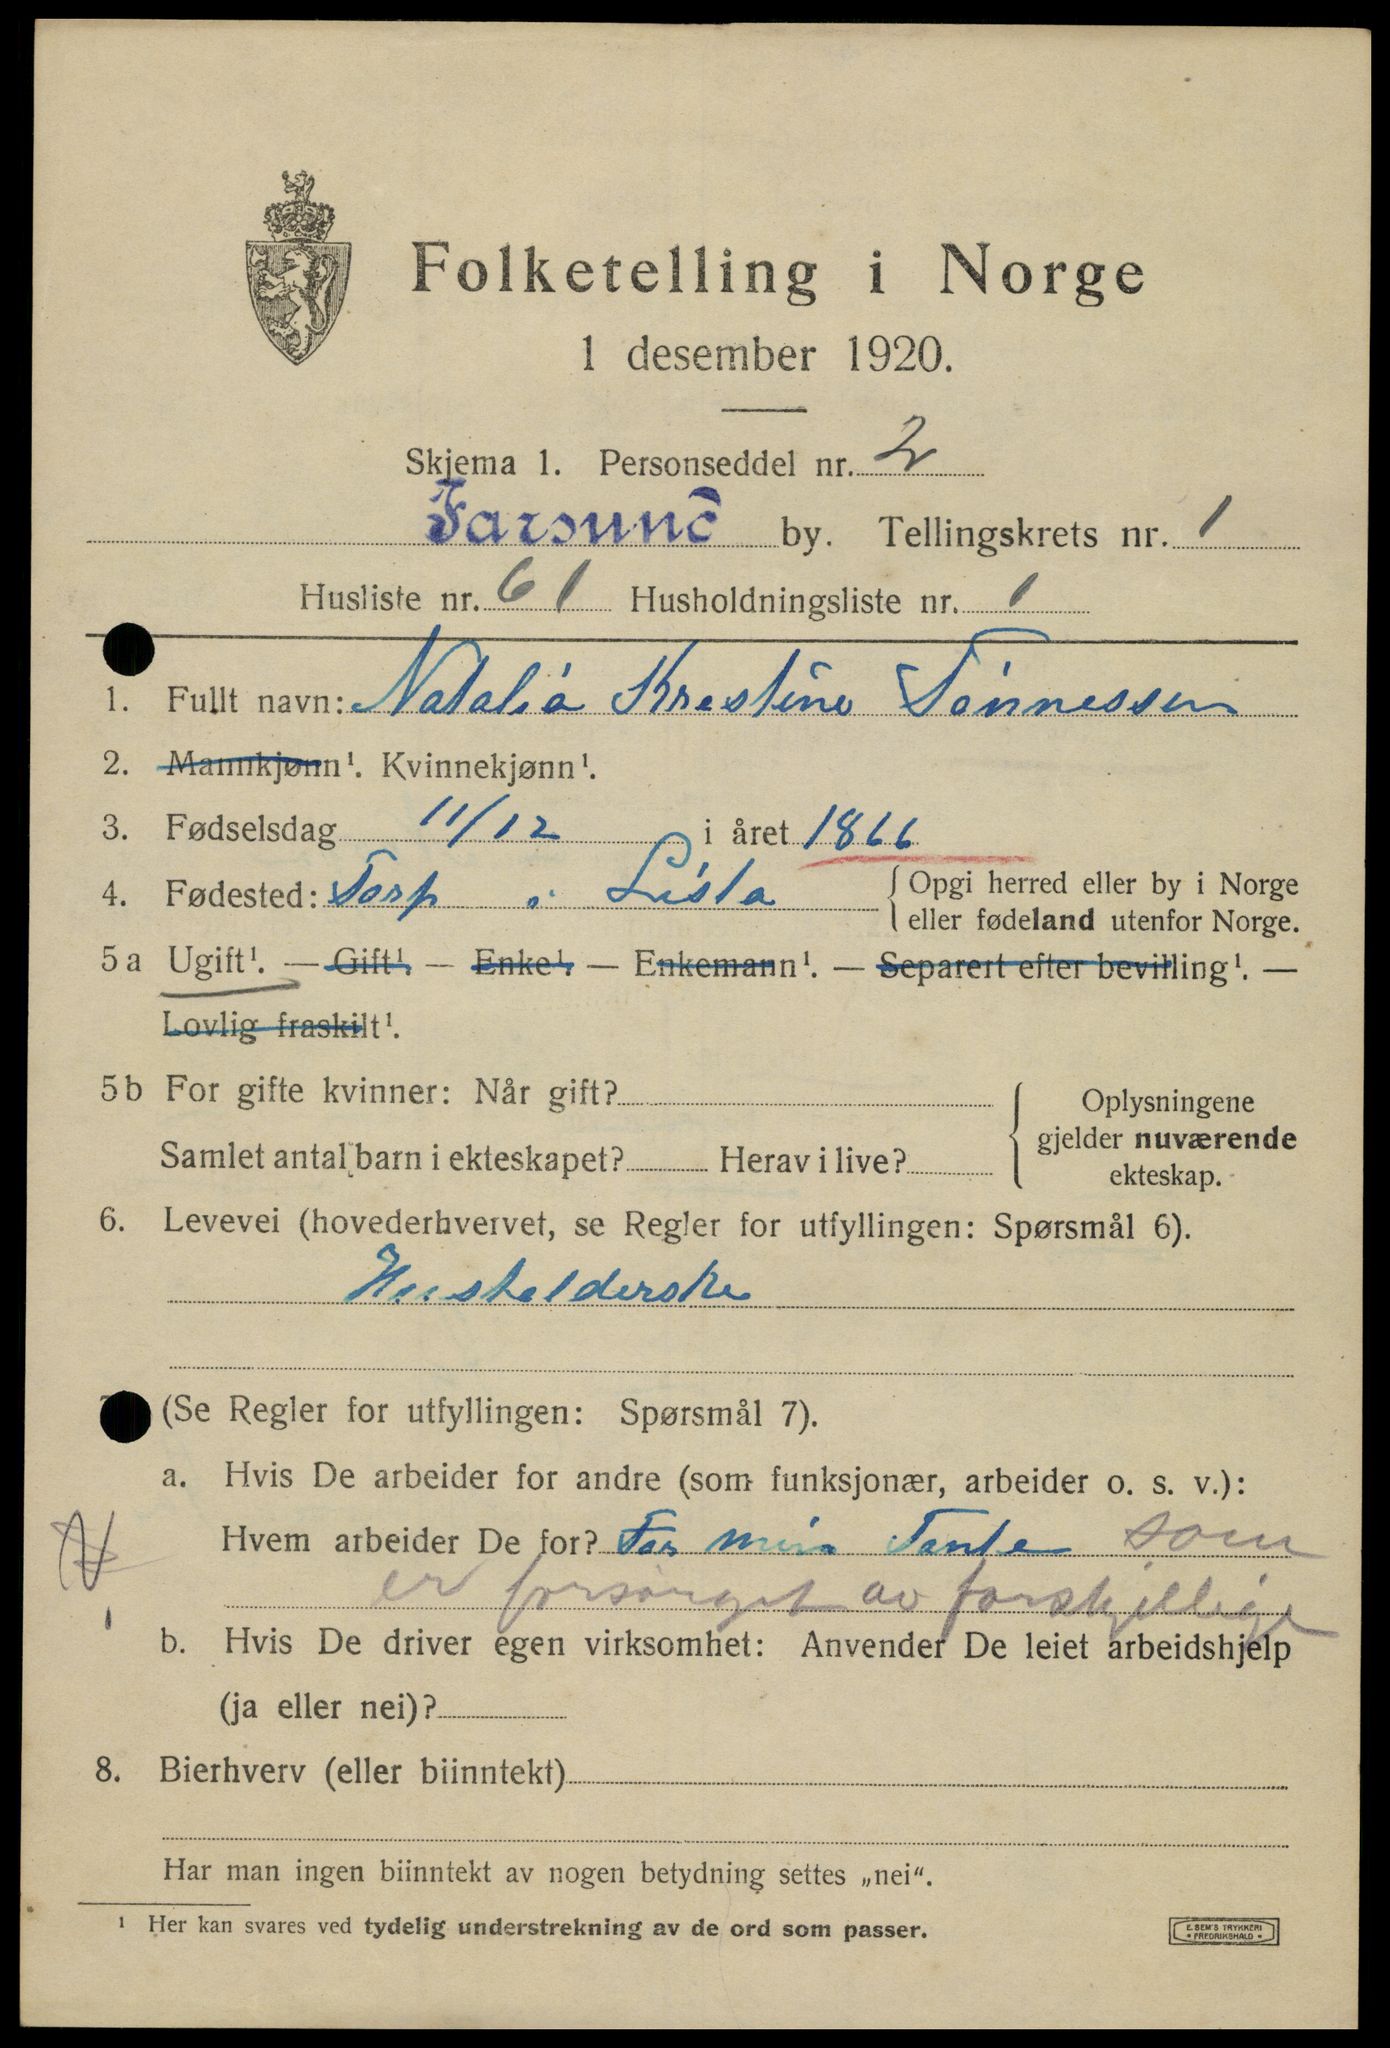 Folketelling i Norge
1 desember 1920.
Skjema 1. Personseddel nr. 2
Farsund by. Tellingskrets nr. 1
Husliste nr. 61 Husholdningsliste nr. 1
1. Fullt navn: Natalia Kristine Tønnessen
2. Mannkjønn¹. Kvinnekjønn¹.
3. Fødselsdag 11/12 i året 1866
4. Fødested: Torp i Lista { Opgi herred eller by i Norge
eller fødeland utenfor Norge.
5a Ugift¹. — Gift¹. — Enke¹. — Enkemann¹. — Separert efter bevilling¹. —
Lovlig fraskilt¹.
5b For gifte kvinner: Når gift?
Samlet antal barn i ekteskapet? Herav i live?
{ Oplysningene
gjelder nuværende
ekteskap.
6. Levevei (hovederhvervet, se Regler for utfyllingen: Spørsmål 6).
Husholderske
(Se Regler for utfyllingen: Spørsmål 7).
a. Hvis De arbeider for andre (som funksjonær, arbeider o. s. v.):
Hvem arbeider De for? For min Tante som
er forsørget av forskjellige
b. Hvis De driver egen virksomhet: Anvender De leiet arbeidshjelp
(ja eller nei)?
8. Bierhverv (eller biinntekt)
Har man ingen biinntekt av nogen betydning settes „nei“.
¹ Her kan svares ved tydelig understrekning av de ord som passer.
E. SEM'S TRYKKERI
• FREDRIKSHALD •